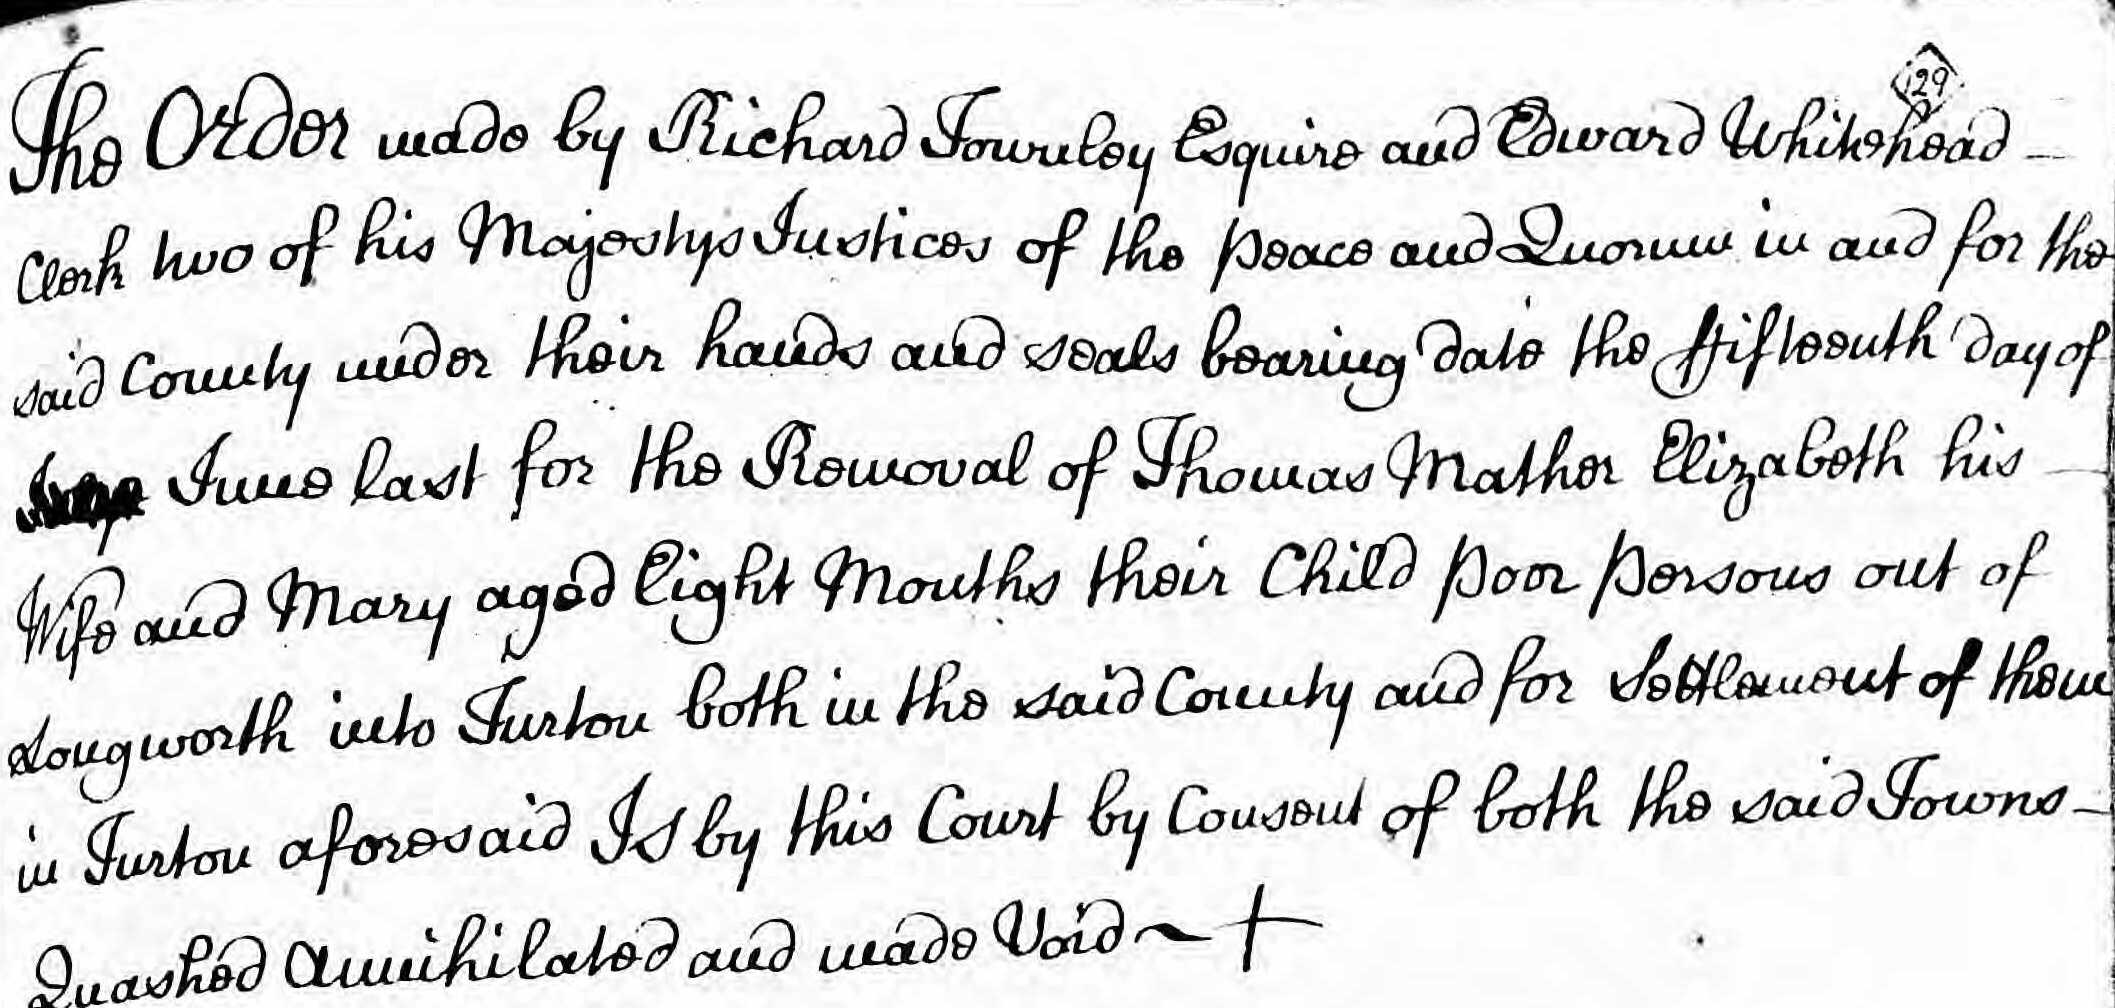 29
The Order made by Richard Townley Esquire and Edward Whitehead
Clerk two of his Majestys Justices of the Peace and Quorum in and for the
said County under their hands and seals bearing date the ffifteenth day of
June last for the Removal of Thomas Mather Elizabeth his
Wife and Mary aged Eight Months their Child poor persons out of
Longworth into Turton both in the said County and for Settlement of them
in Turton aforesaid IS by this Court by Consent of both the said Towns
Quashed Annihilated and made Void